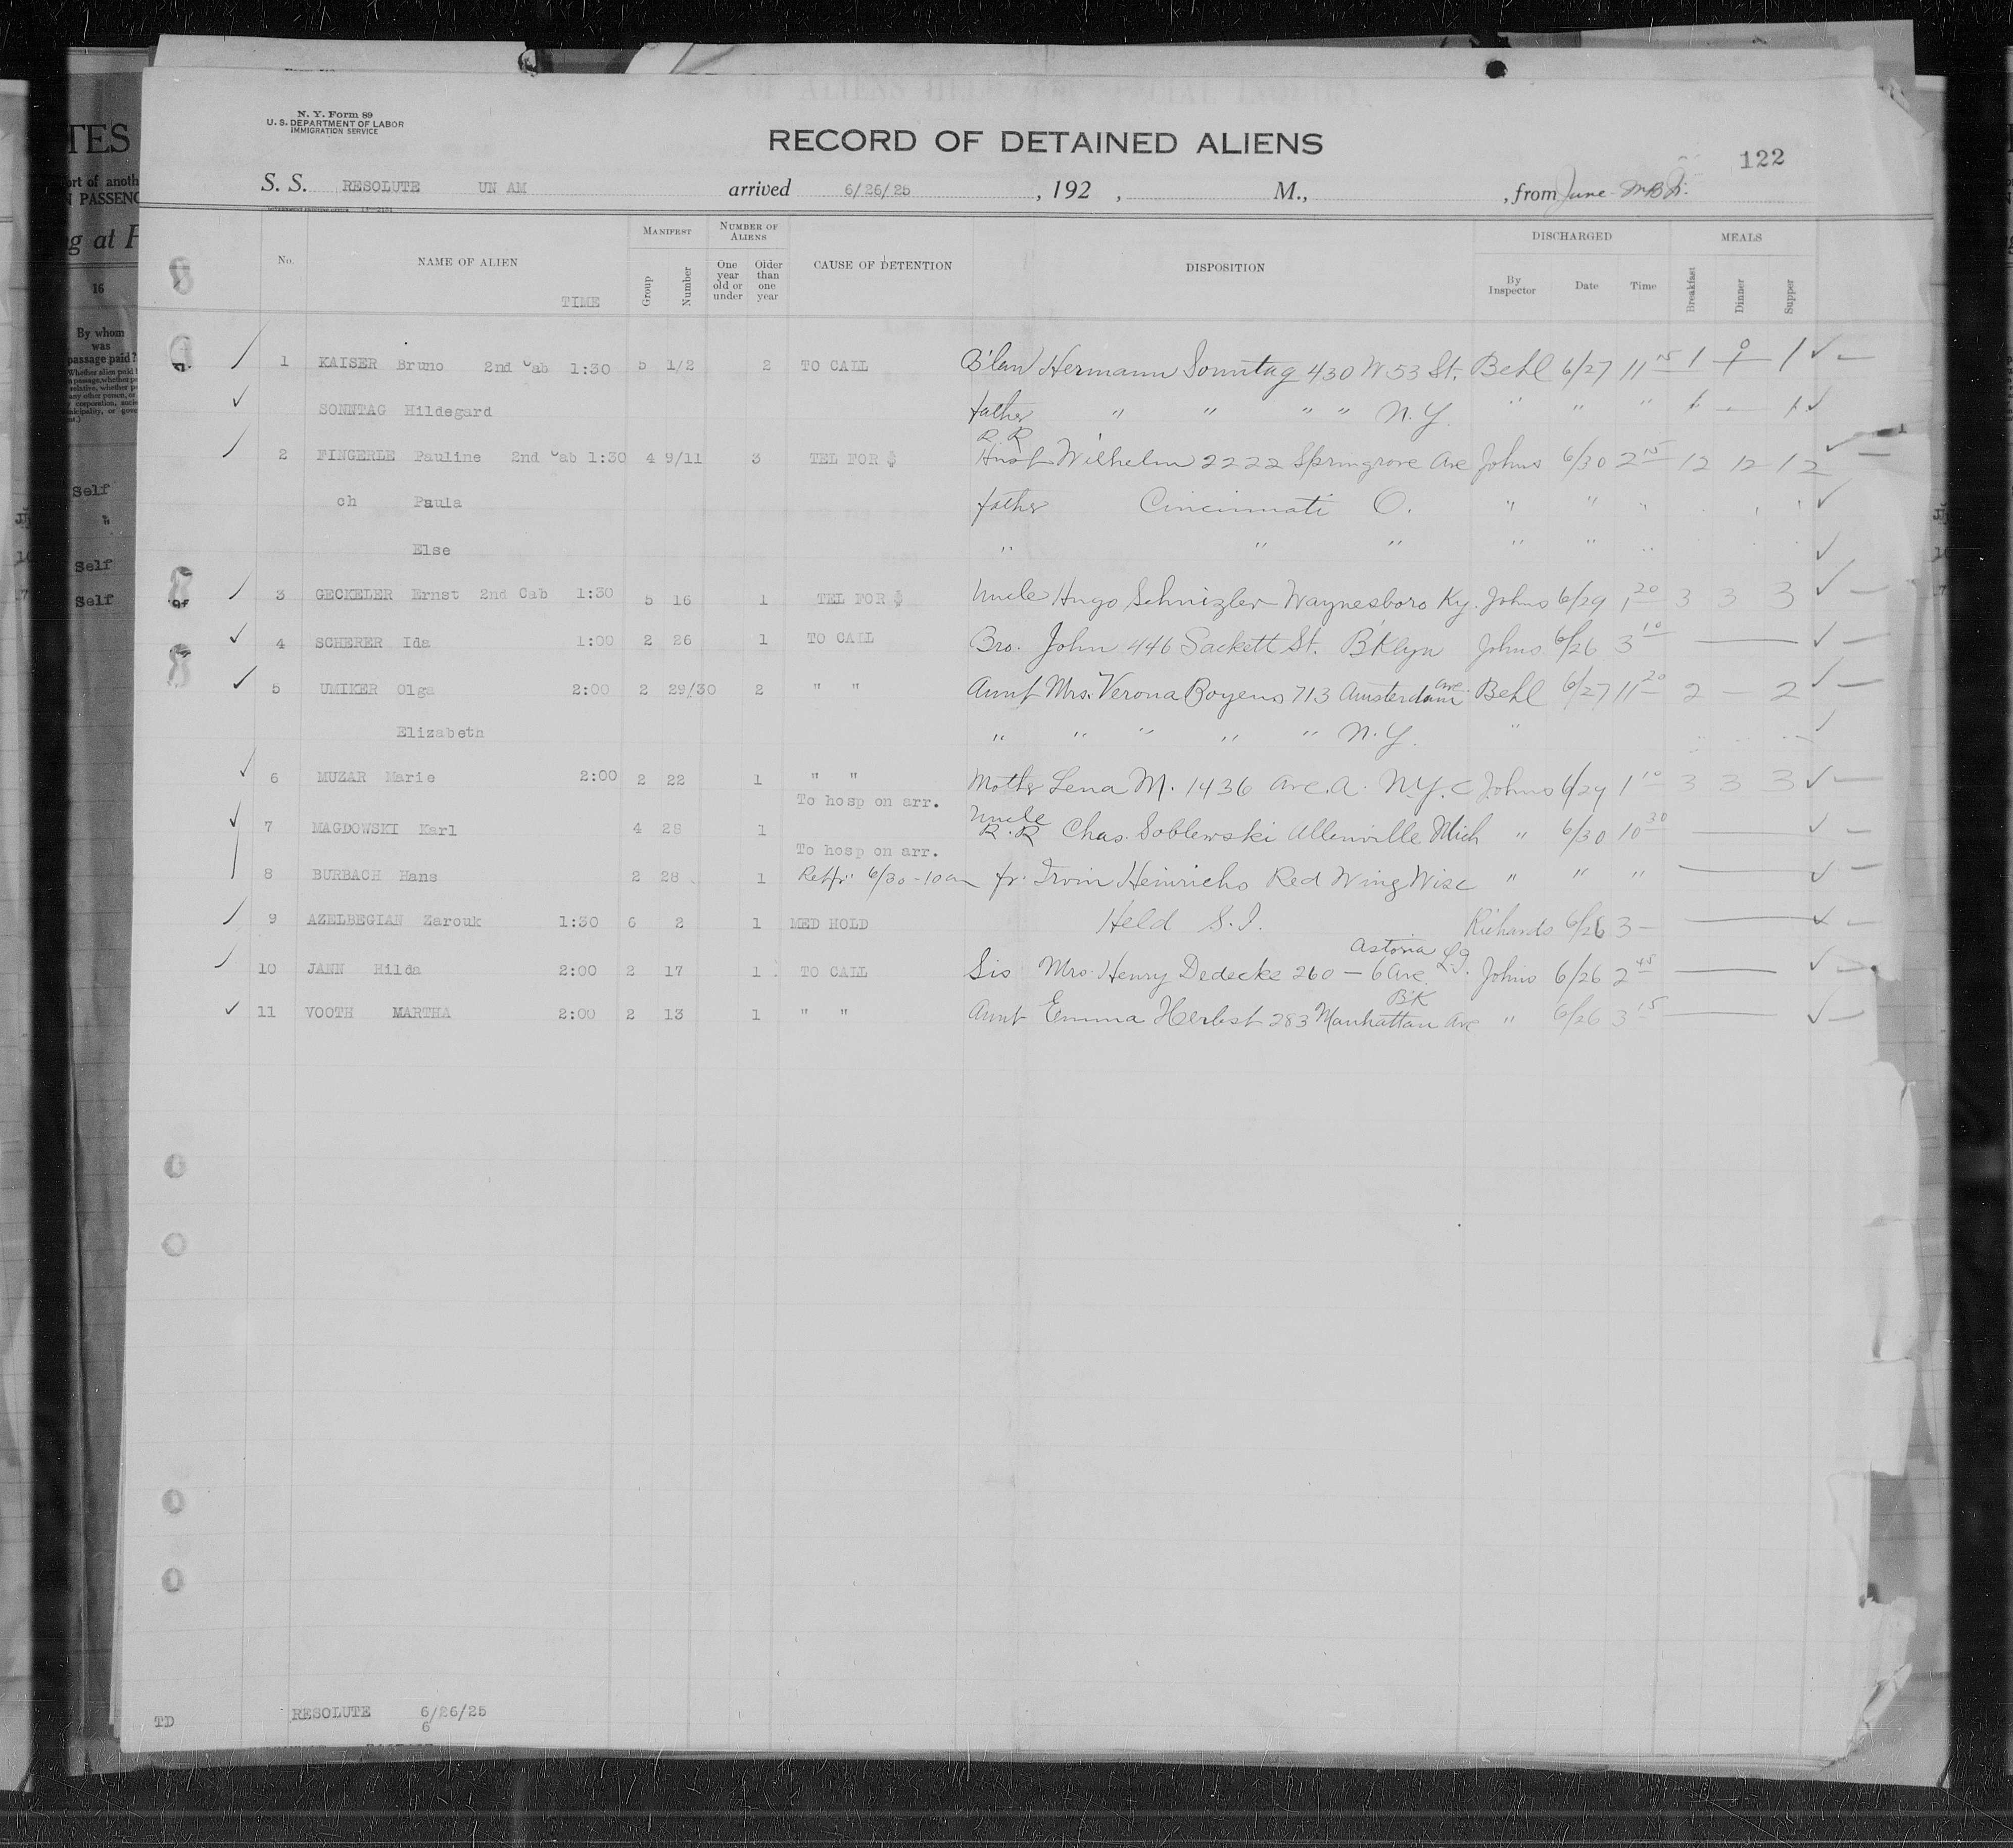 N. Y. Form 89
U. S. DEPARTMENT OF LABOR
IMMIGRATION SERVICE
RECORD OF DETAINED ALIENS
122
S. S. RESOLUTE UN AM arrived 6/26/25, 192 , M., , from June
No. NAME OF ALIEN TIME MANIFEST Group Number NUMBER OF ALIENS One year old or under Older than one year CAUSE OF DETENTION DISPOSITION DISCHARGED By Inspector Date Time MEALS Breakfast Dinner Supper
1 KAISER Bruno 2nd Cab 1:30 5 1/2 2 TO CALL B'law Hermann Sonntag 430 W 53 St. Behl 6/27 11 15 1 0 1 ✓ —
SONNTAG Hildegard father " " " " N.Y. " " " ✓
R R
2 FINGERLE Pauline 2nd Cab 1:30 4 9/11 3 TEL FOR Husb Wilhelm 2222 Springrove Ave Johns 6/30 2 15 12 12 12 ✓ —
ch Paula father Cincinnati O. " " " ✓
Else " " " " " " ✓
3 GECKELER Ernst 2nd Cab 1:30 5 16 1 TEL FOR Uncle Hugo Schnizler Waynesboro Ky. Johns 6/29 1 20 3 3 3 ✓ —
4 SCHERER Ida 1:00 2 26 1 TO CALL Bro. John 446 Sackett St. B'Klyn Johns 6/26 3 10 — ✓ —
5 UMIKER Olga 2:00 2 29/30 2 " " Aunt Mrs. Verona Boyens 713 Amsterdam Ave. Behl 6/27 11 20 2 — 2 ✓ —
Elizabeth " " " " " N.Y. " ✓
6 MUZAR Marie 2:00 2 22 1 " " Mother Lena M. 1436 Ave. A. N.Y.C Johns 6/29 1 10 3 3 3 ✓ —
To hosp on arr.
7 MAGDOWSKI Karl 4 28 1 Uncle R.R Chas. Soblewski Allenville Mich " 6/30 10 30 ✓ —
To hosp on arr.
8 BURBACH Hans 2 28 1 6/30 - 10 am fr. Irvin Heinrichs Red Wing Wisc " " " — ✓ —
9 AZELBEGIAN Zarouk 1:30 6 2 1 MED HOLD Held S.I. Richards 6/26 3 — — ✓ —
Astoria L.I.
10 JANN Hilda 2:00 2 17 1 TO CALL Sis Mrs. Henry Dedecke 260 — 6 Ave. Johns 6/26 2 45 — ✓ —
B'K
11 VOOTH MARTHA 2:00 2 13 1 " " Aunt Emma Herbst 283 Manhattan Ave " 6/26 3 15 — ✓ —
TD RESOLUTE 6/26/25
6
TES
ort of anoth
N PASSENG
g at F
16
By whom
was
passage paid?
Self
"
Self
Self